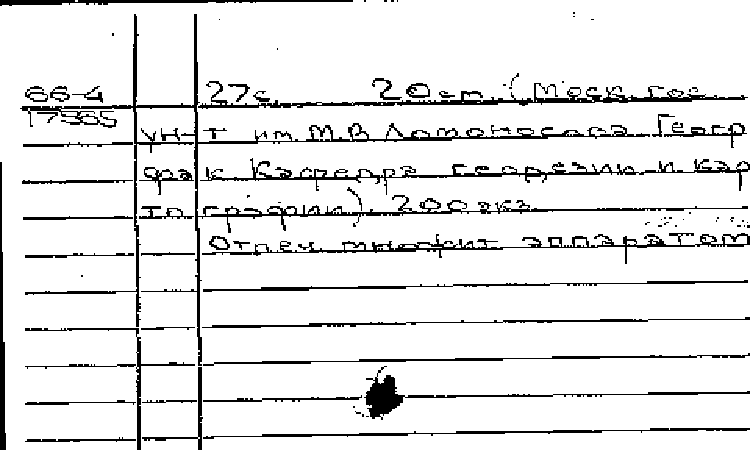 66-4 27с. 20 см. (Моск. гос.
17565
ун-т им. М.В. Ломоносова. Геогр.
фак. Кафедра геодезии и кар
тографии). 200 экз.
Отпеч. множит. аппаратом